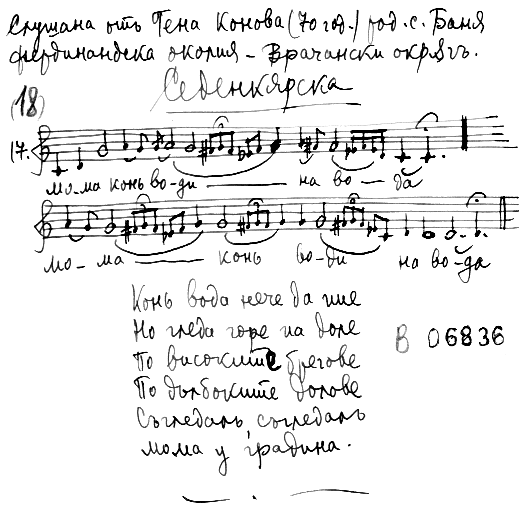 Слушана отъ Гена Конова (70 год.) род. с. Баня
фердинандска околия – Врачански окрѫгъ.
Седенкярска
(18)
17.
мо-ма конь во-ди на во-да
мо-ма конь во-ди на во-да
Конь вода нече да пие
Но гледа горе на доле
По високите брегове
В 06836
По дълбоките долове
Съгледалъ, съгледалъ
мома у градина.